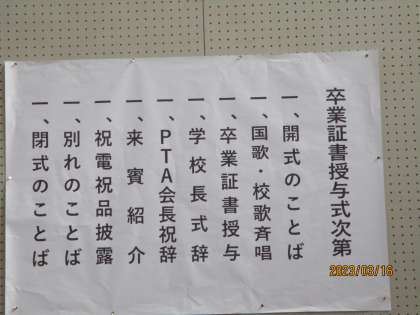 卒業証書授与式次第
一、開式のことば
一、国歌・校歌斉唱
一、卒業証書授与
一、学校長式辞
一、PTA会長祝辞
一、来賓紹介
一、祝電祝品披露
一、別れのことば
一、閉式のことば
2023/03/16